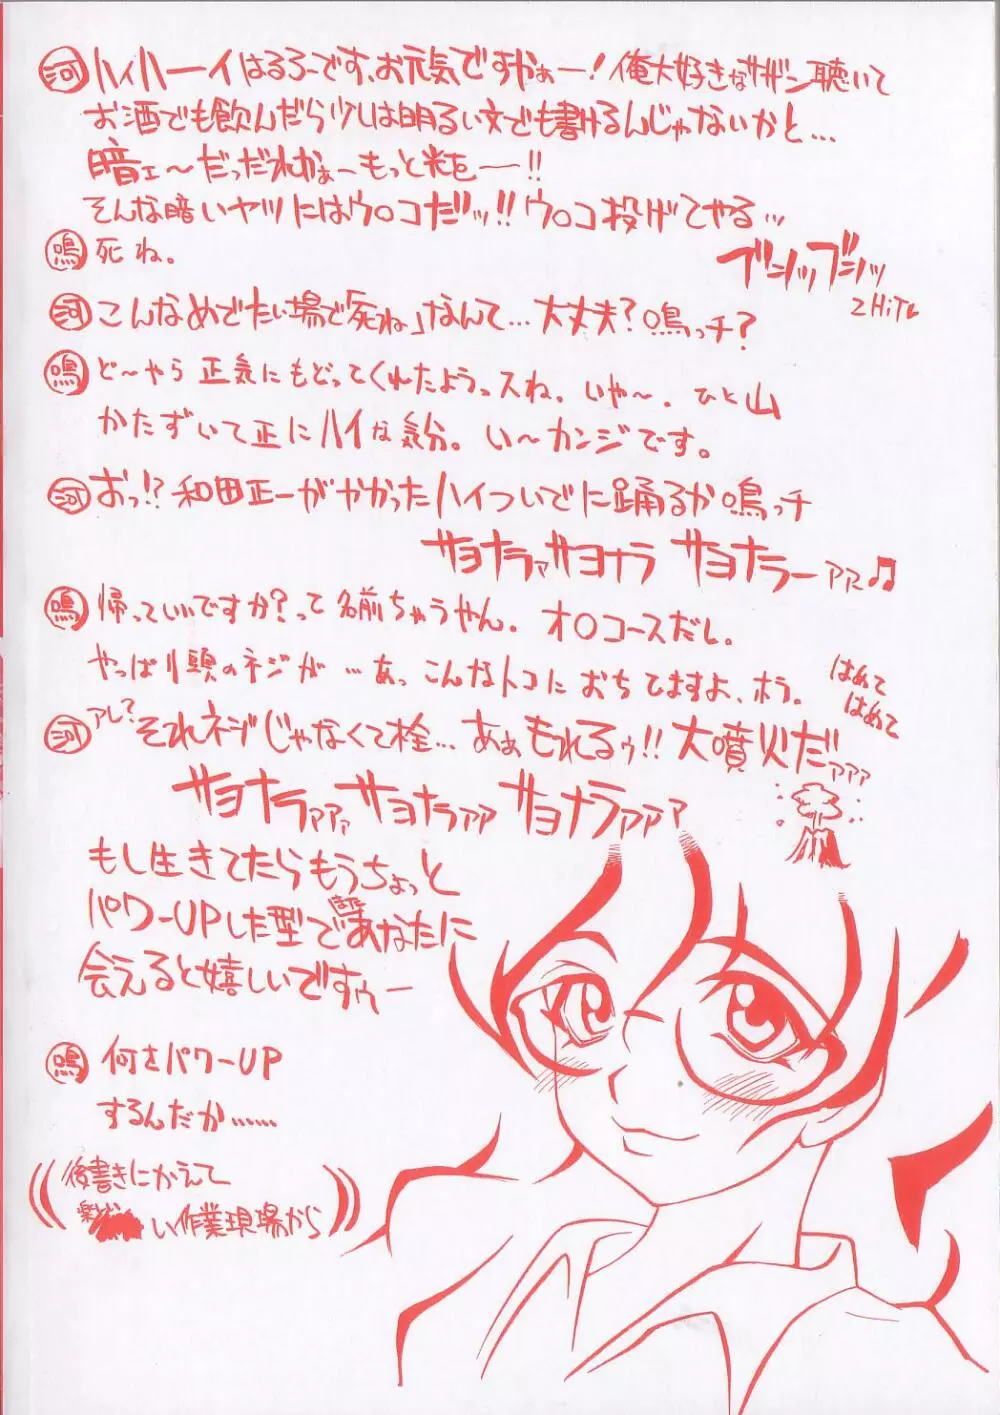 河 ハイハーイはるろーです、お元気ですかぁー!俺大好きなサザン聴いて
お酒でも飲んだら少しは明るい文でも書けるんじゃないかと…
暗ェ〜だっだれかぁ〜もっと光を──!!
そんな暗いヤツにはウ○コだッ!!ウ○コ投げてやるッ
ブンッブンッ
2HiTL
鳴 死ね。
河 こんなめでたい場で「死ね」なんて…大丈夫?鳴っチ?
鳴 ど〜やら正気にもどってくれたようっスね。いや〜。ひと山
かたずいて正にハイな気分。い〜カンジです。
河 おっ!?和田正一がやかったハイついでに踊るか鳴っチ
サヨナラァサヨナラ サヨナラーァァ♫
鳴 帰っていいですか?って名前ちゃうやん。オ○コースだし。
やっぱり頭のネジが…あっこんなトコにおちてますよ、ホラ。
はめて
はめて
河 アレ?それネジじゃなくて栓…あぁもれるゥ!!大噴火だァァァ
サヨナラァァァサヨナラァァァサヨナラァァァ
もし生きてたらもうちょっと
パワーUPした型であなたに
会えると嬉しいですゥー
鳴 何さパワーUP
するんだか……
((後書きにかえて
い作業現場から))